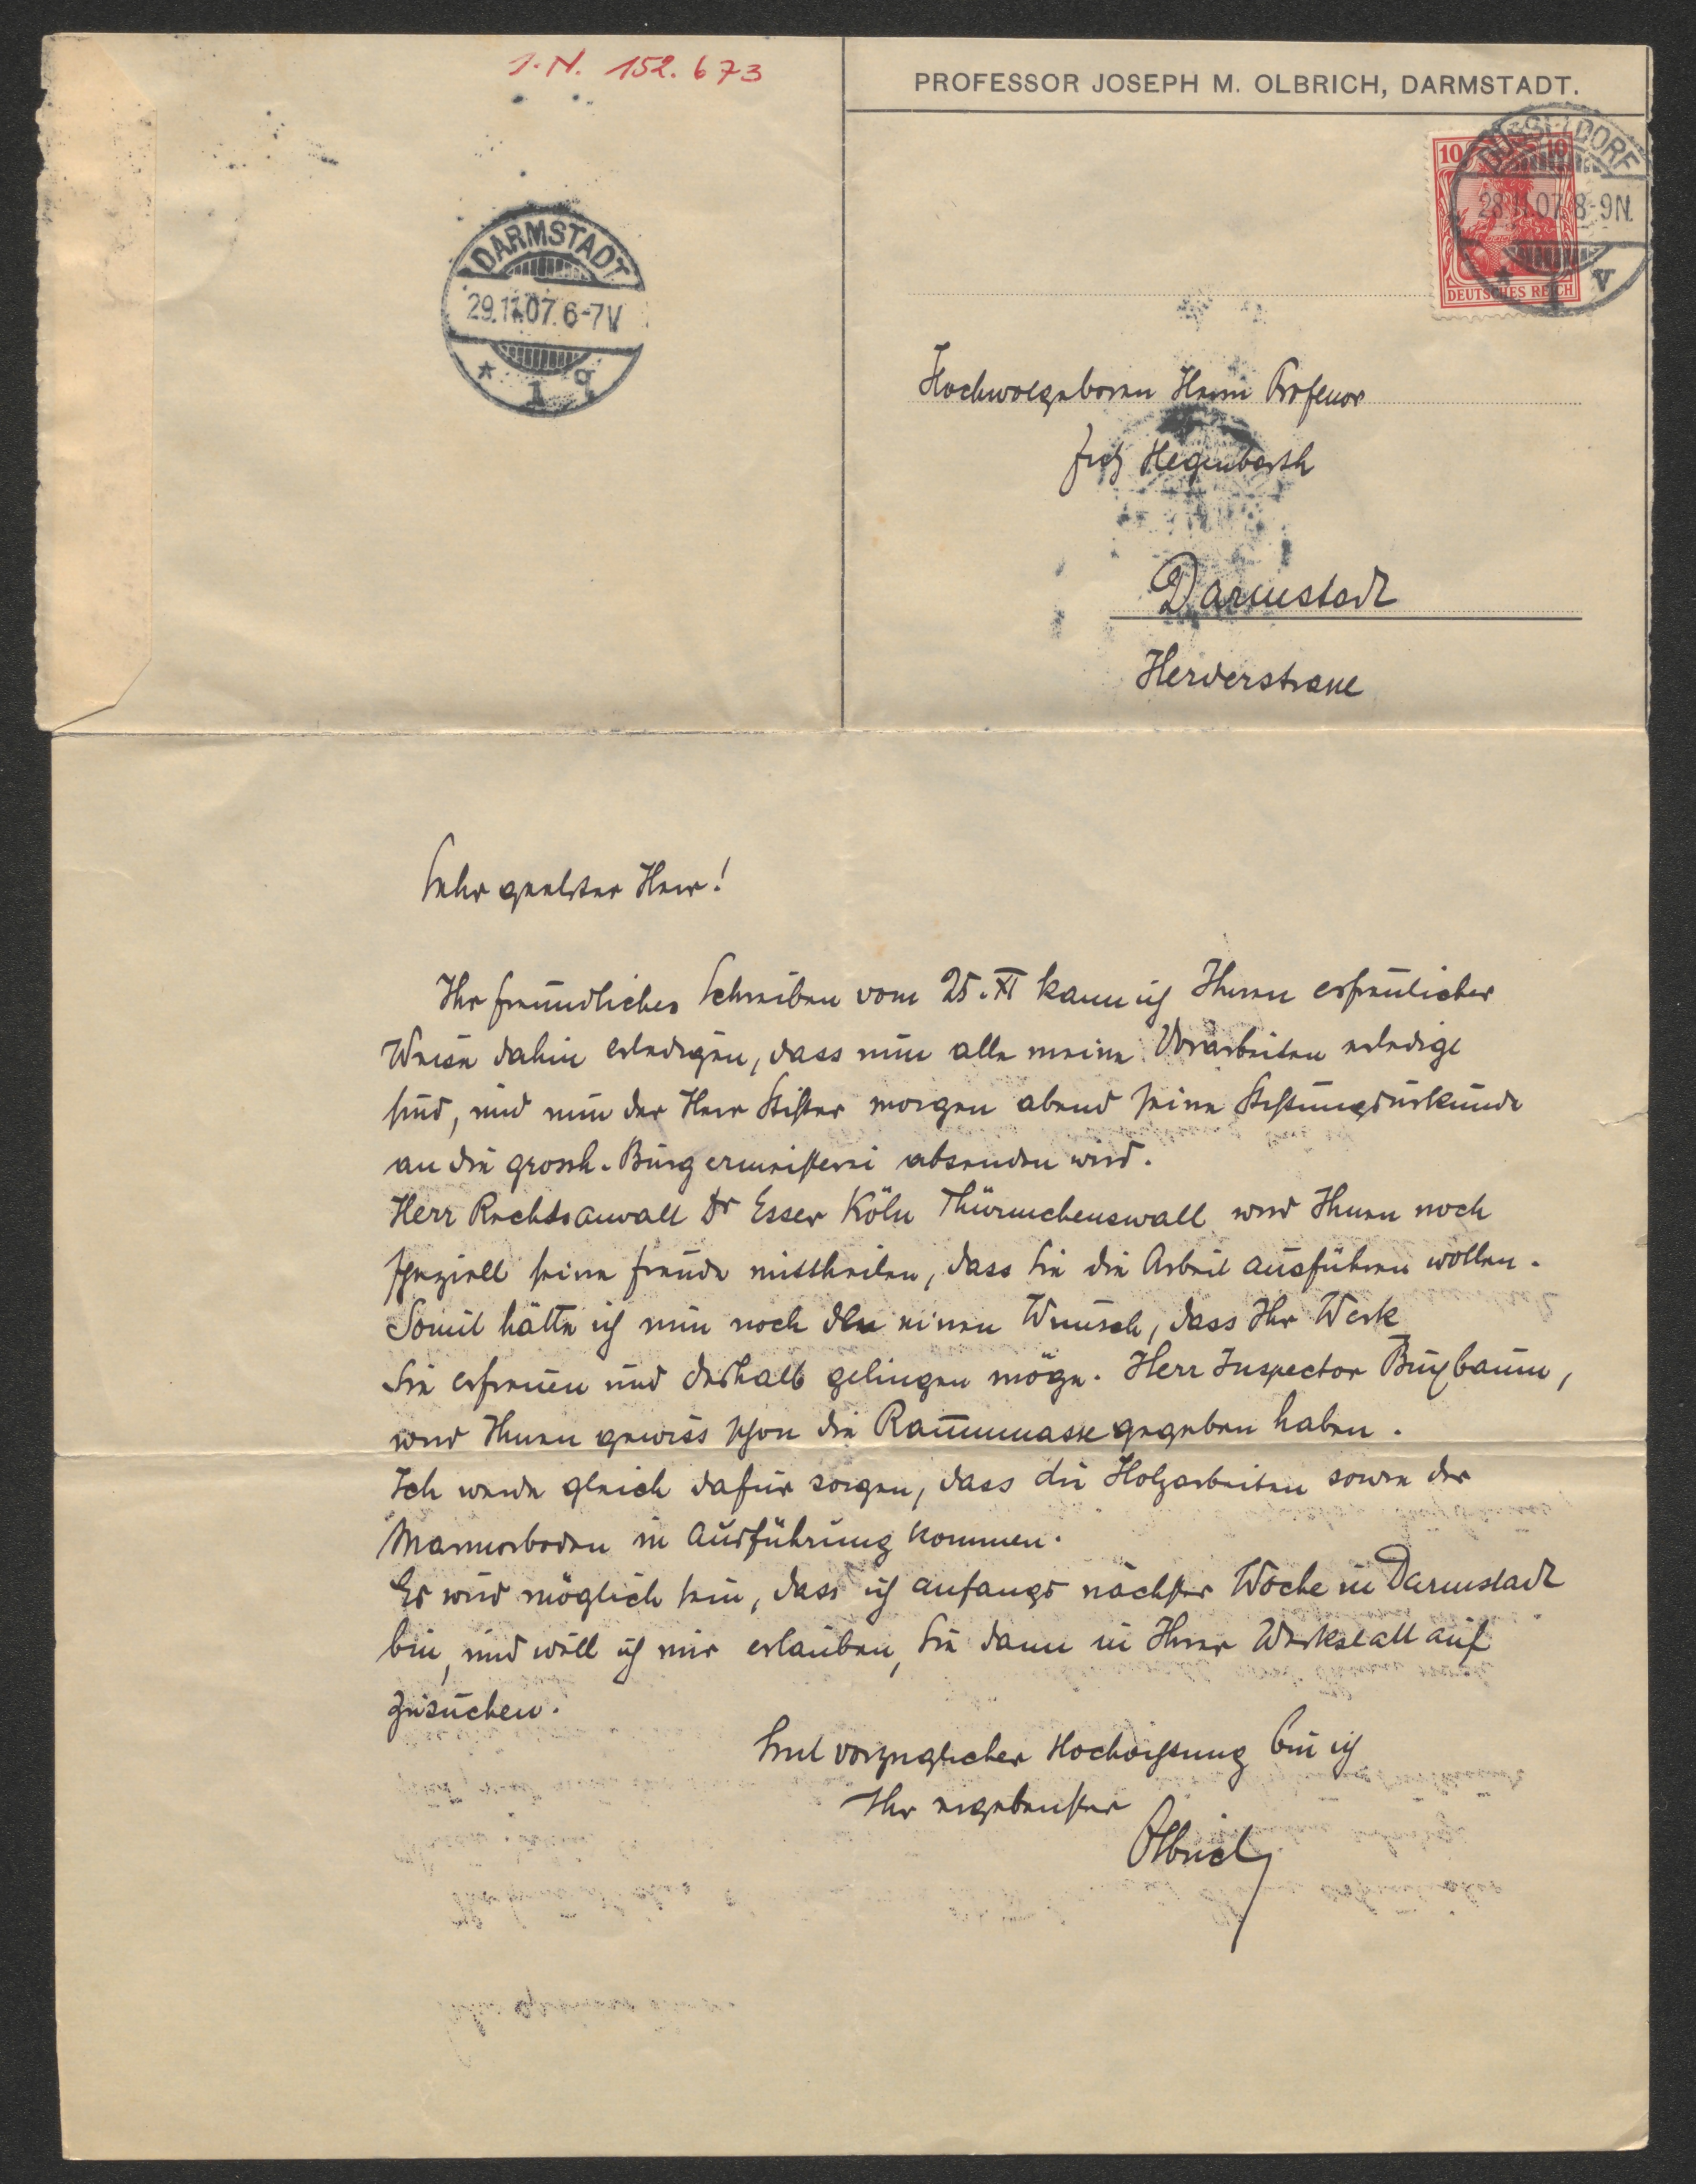 I.N. 152.673
PROFESSOR JOSEPH M. OLBRICH, DARMSTADT.
DÜSSELDORF
28.11.07. 8-9N.
* 1 v
10 10
DEUTSCHES REICH
DARMSTADT
29.11.07. 6-7V
* 1 g
Hochwolgeboren Herrn Professor
Fritz Hegenbarth
Darmstadt
Herderstrasse
Sehr geehrter Herr!
Ihr freundliches Schreiben vom 25. XI kann ich Ihnen erfreulicher
Weise dahin erledigen, dass nun alle meine Vorarbeiten erledigt
sind, und nun der Herr Stifter morgen abend seine Stiftungsurkunde
an die grossh. Bürgermeisterei absenden wird.
Herr Rechtsanwalt Dr Esser Köln Thürmchenswall wird Ihnen noch
speziell seine Freude mittheilen, dass Sie die Arbeit ausführen wollen.
Somit hätte ich nun noch den einen Wunsch, dass Ihr Werk
Sie erfreuen und deshalb gelingen möge. Herr Inspector Buxbaum,
wird Ihnen gewiss schon die Raummasse gegeben haben.
Ich werde gleich dafür sorgen, dass die Holzarbeiten sowie der
Marmorboden in Ausführung kommen.
Es wird möglich sein, dass ich anfangs nächster Woche in Darmstadt
bin, und will ich mir erlauben, Sie dann in Ihrer Werkstatt auf
zusuchen.
vorzuglicher Hochachtung bin ich
Ihr ergebenster
Olbrich